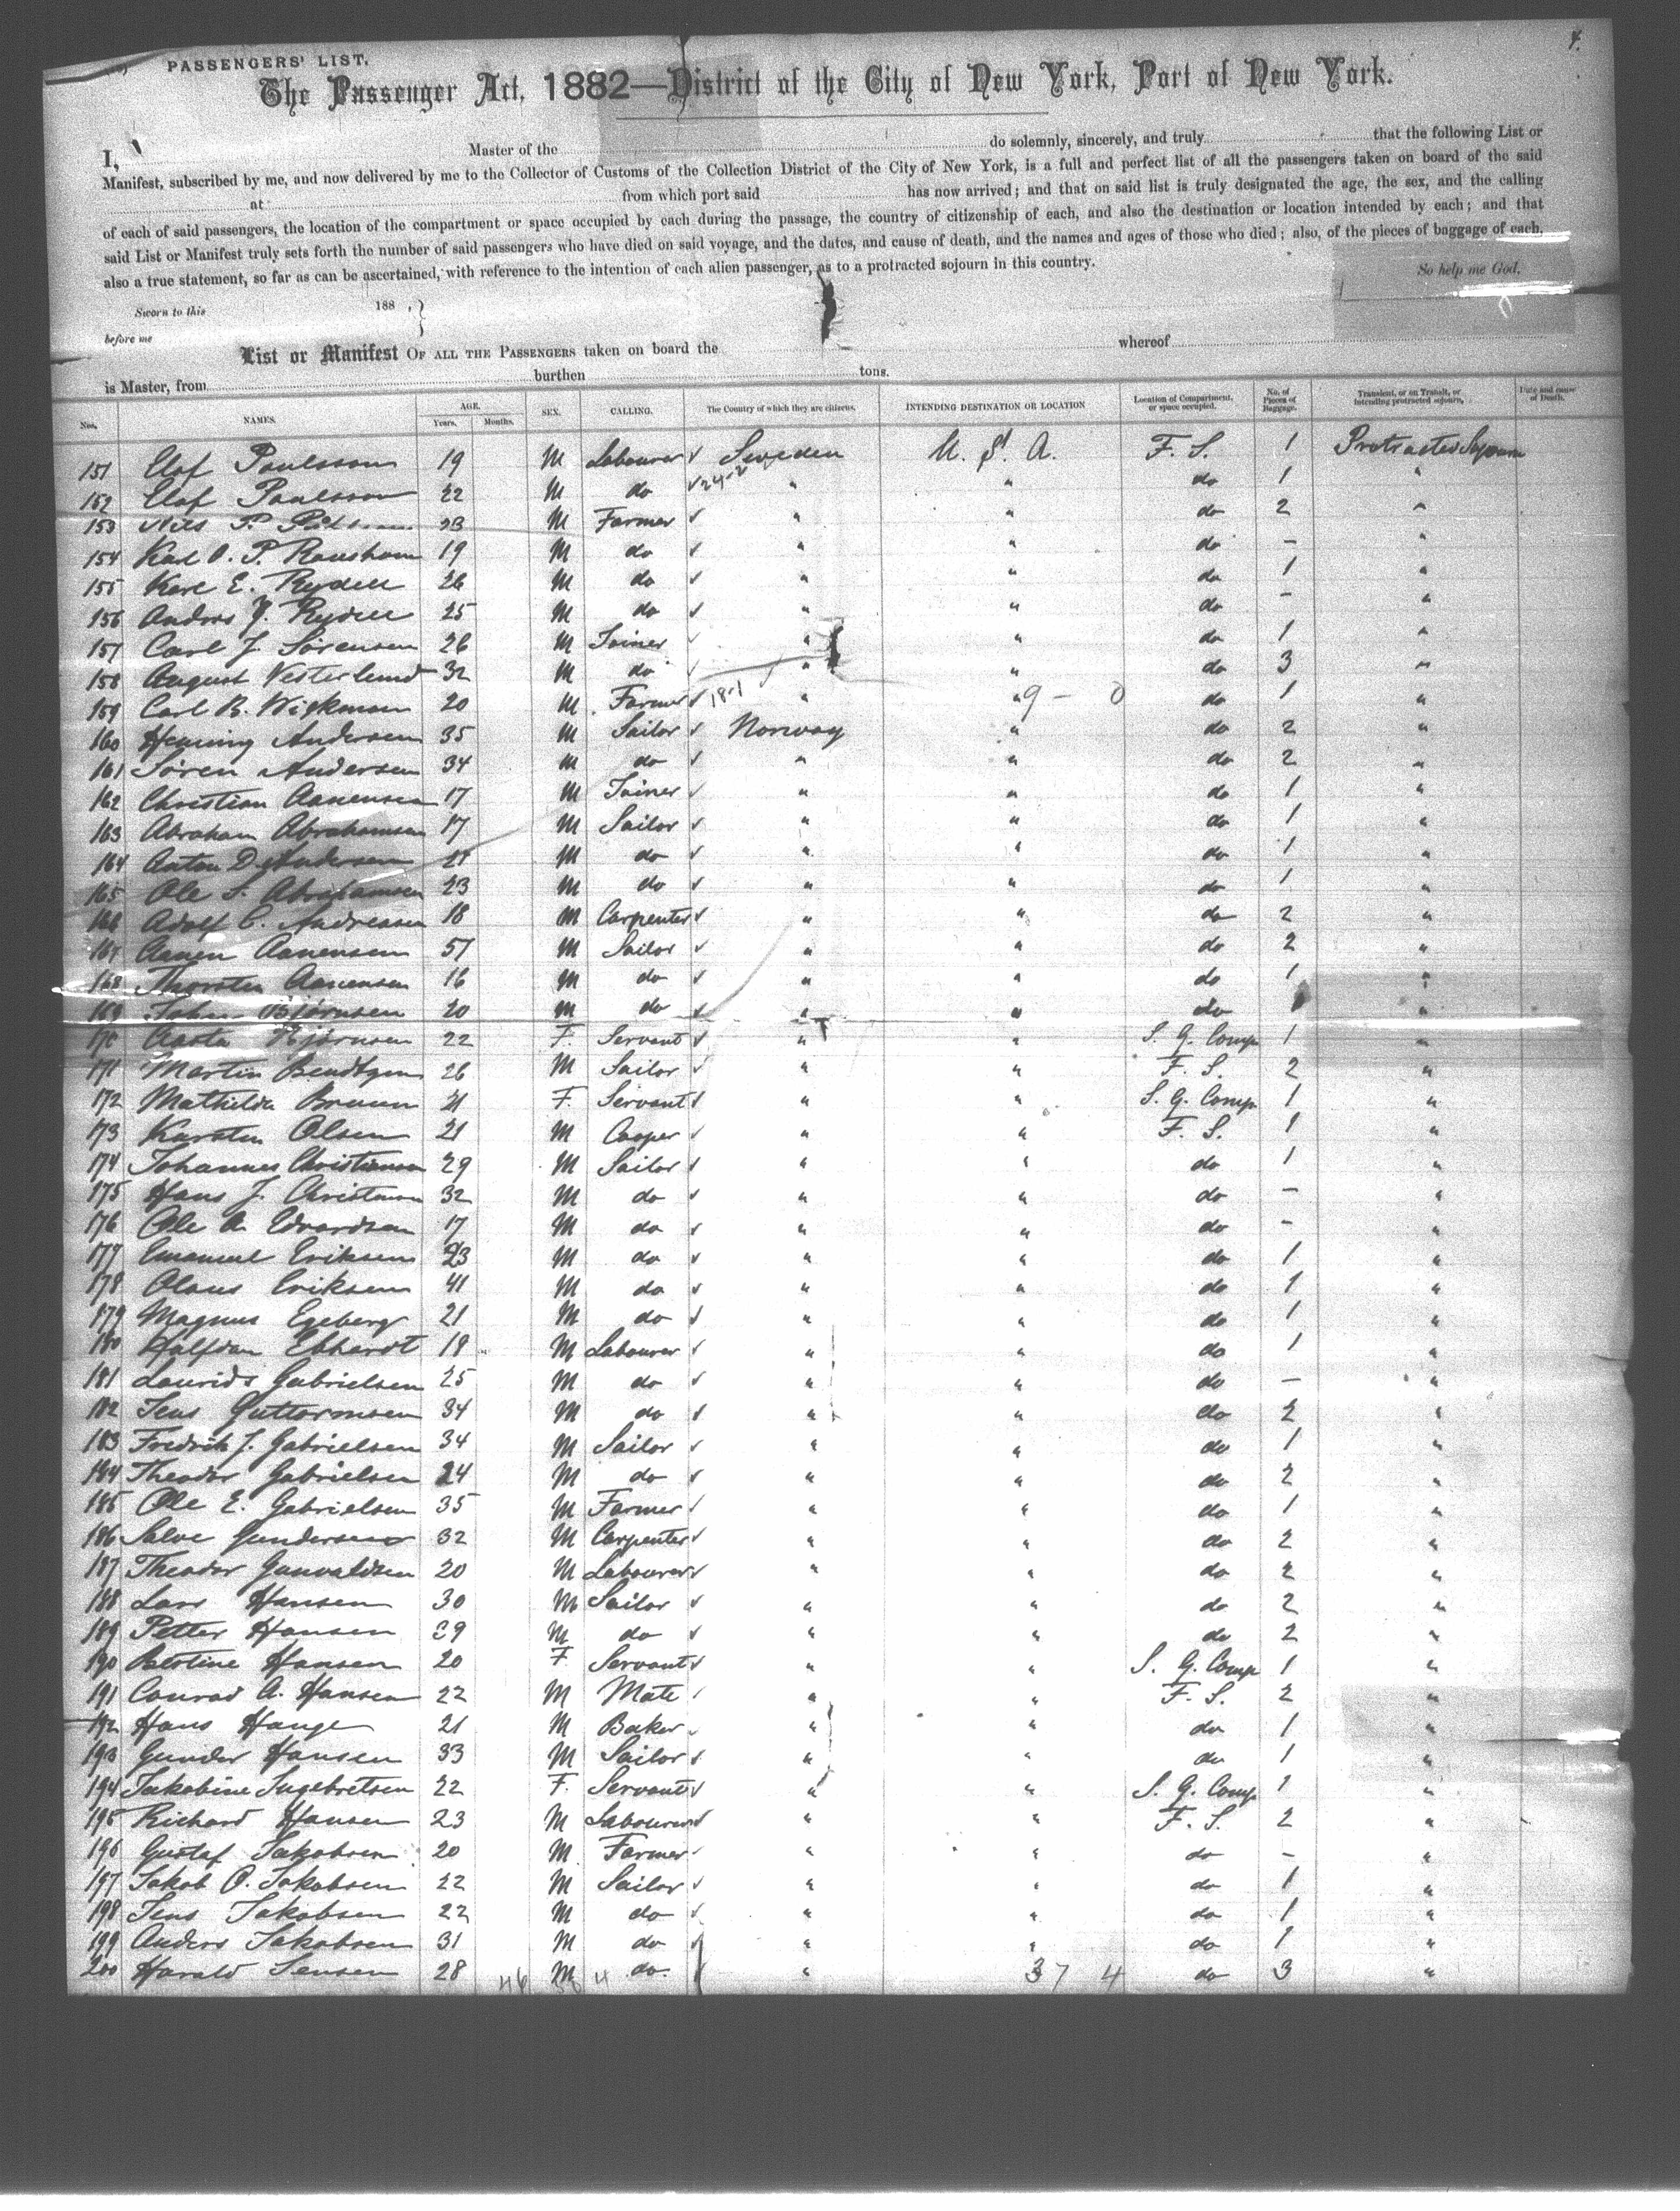 4.
PASSENGERS' LIST.
The Passenger Act, 1882—District of the City of New York, Port of New York.
I, Master of the do solemnly, sincerely, and truly that the following List or
Manifest, subscribed by me, and now delivered by me to the Collector of Customs of the Collection District of the City of New York, is a full and perfect list of all the passengers taken on board of the said
at from which port said has now arrived; and that on said list is truly designated the age, the sex, and the calling
of each of said passengers, the location of the compartment or space occupied by each during the passage, the country of citizenship of each, and also the destination or location intended by each; and that
said List or Manifest truly sets forth the number of said passengers who have died on said voyage, and the dates, and cause of death, and the names and ages of those who died; also, of the pieces of baggage of each,
also a true statement, so far as can be ascertained, with reference to the intention of each alien passenger, as to a protracted sojourn in this country. So help me God.
Sworn to this 188 , }
before me
List or Manifest OF ALL THE PASSENGERS taken on board the whereof
is Master, from burthen tons.
Nos. NAMES. AGE. Years. Months. SEX. CALLING. The Country of which they are citizens. INTENDING DESTINATION OR LOCATION Location of Compartment, or space occupied. No. of Pieces of Baggage. Transient, or on Transit, or intending protracted sojourn. Date and cause of Death.
151 Elof Paulsson 19 M Labourer ✓ Sweden U. St. A. F. S. 1 Protracted Sojourn
152 Elof Paulsson 22 M do ✓ 24-2 " " do 1 "
153 Nils P. 23 M Farmer ✓ " " do 2 "
154 Karl O. P. 19 M do ✓ " " do - "
155 Karl E. Rydell 26 M do ✓ " " do 1 "
156 Anders J. Rydell 25 M do ✓ " " do - "
157 Carl J. Sörensen 26 M Joiner ✓ " " do 1 "
158 August Vesterlund 32 M do ✓ " " do 3 "
159 Carl B. Wickman 20 M Farmer ✓ 18-1 " " 9 - 0 do 1 "
160 Henning Andersen 35 M Sailor ✓ Norway " do 2 "
161 Sören Andersen 34 M do ✓ " " do 2 "
162 Christian Aanensen 17 M Joiner ✓ " " do 1 "
163 Abraham Abrahamsen 17 M Sailor ✓ " " do 1 "
164 Anton D. Andersen 21 M do ✓ " " do 1 "
165 Ole S. Abrahamsen 23 M do ✓ " " do 1 "
166 Adolf C. Andreasen 18 M Carpenter ✓ " " do 2 "
167 Aanen Aanensen 57 M Sailor ✓ " " do 2 "
168 Thorsten Aanensen 16 M do ✓ " " do 1 "
169 John Björnsen 20 M do ✓ " " do "
170 Aasta Björnsen 22 F. Servant ✓ " " S. G. Comp 1 "
171 Martin Bendtzen 26 M Sailor ✓ " " F. S. 2 "
172 Mathilda Bruun 21 F. Servant ✓ " " S. G. Comp 1 "
173 Karsten Olsen 21 M Cooper ✓ " " F. S. 1 "
174 Johannes Christiansen 29 M Sailor ✓ " " do 1 "
175 Hans J. Christensen 32 M do ✓ " " do - "
176 Ole A. Edvardsen 17 M do ✓ " " do - "
177 Emanuel Eriksen 23 M do ✓ " " do 1 "
178 Olaus Eriksen 41 M do ✓ " " do 1 "
179 Magnus Egeberg 21 M do ✓ " " do 1 "
180 Halfdan Ebhardt 18 M Labourer ✓ " " do 1 "
181 Laurids Gabrielsen 25 M do ✓ " " do - "
182 Jens Guttormsen 34 M do ✓ " " do 2 "
183 Fredrik J. Gabrielsen 34 M Sailor ✓ " " do 1 "
184 Theodor Gabrielsen 24 M do ✓ " " do 2 "
185 Ole E. Gabrielsen 35 M Farmer ✓ " " do 1 "
186 Salve Gundersen 32 M Carpenter ✓ " " do 2 "
187 Theodor Gunvaldsen 20 M Labourer ✓ " " do 2 "
188 Lars Hansen 30 M Sailor ✓ " " do 2 "
189 Petter Hansen 29 M do ✓ " " do 2 "
190 Hansen 20 F. Servant ✓ " " S. G. Comp 1 "
191 Conrad A. Hansen 22 M Mate ✓ " " F. S. 2 "
192 Hans Hauge 21 M Baker ✓ " " do 1 "
193 Gunder Hansen 33 M Sailor ✓ " " do 1 "
194 Jakobine Ingebretsen 22 F. Servant ✓ " " S. G. Comp 1 "
195 Richard Hansen 23 M Labourer ✓ " " F. S. 2 "
196 Gustaf Jakobsen 20 M Farmer ✓ " " do - "
197 Jakob O. Jakobsen 22 M Sailor ✓ " " do 1 "
198 Jens Jakobsen 22 M do ✓ " " do 1 "
199 Anders Jakobsen 31 M do ✓ " " do 1 "
200 Harald Jensen 28 46 M 4 do. ✓ " 37 4 do 3 "